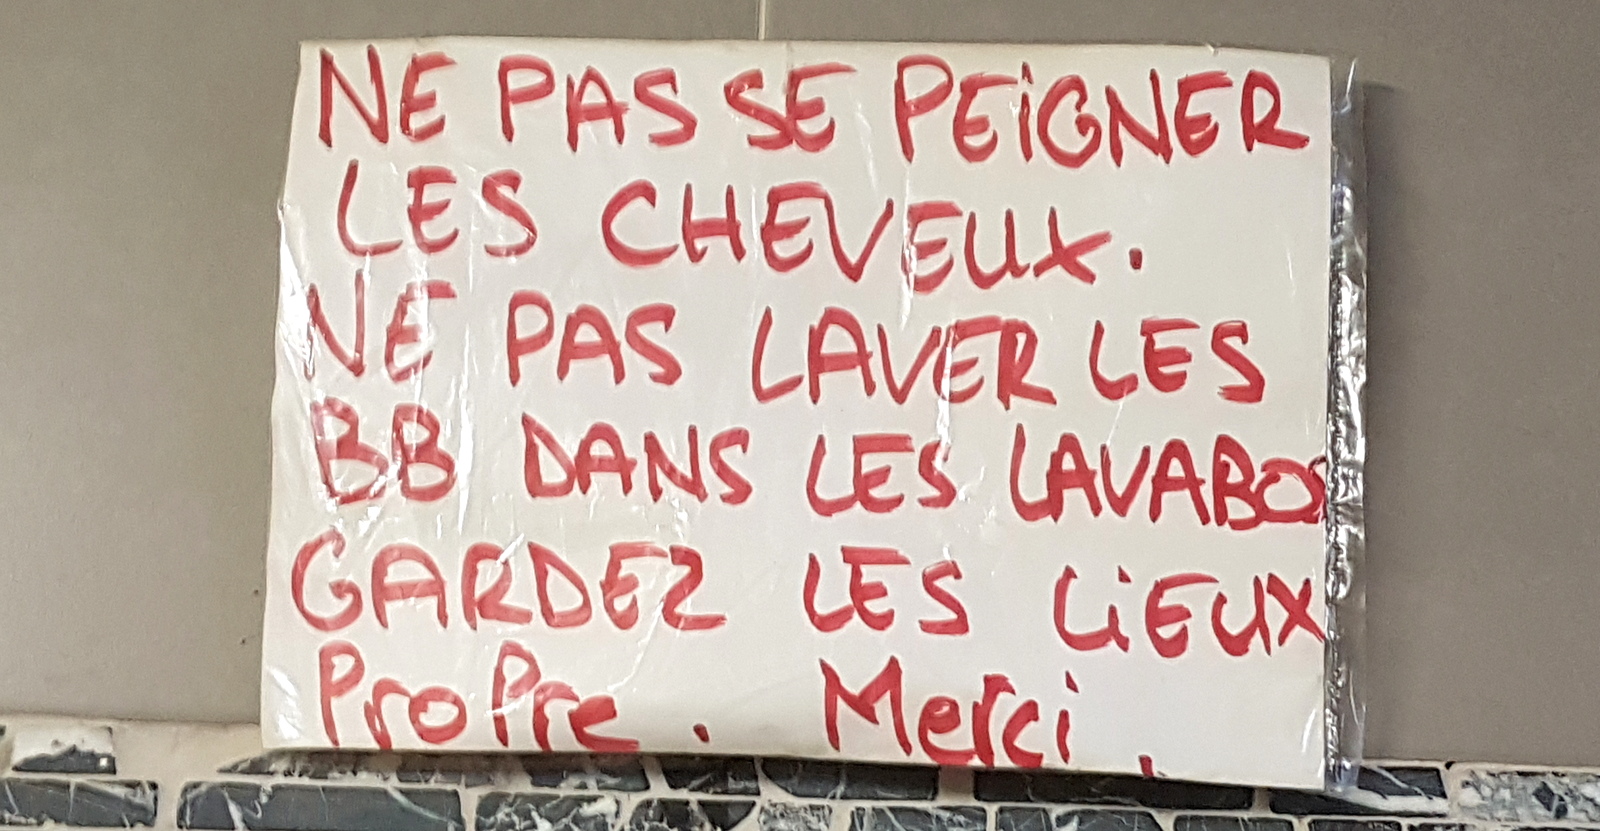 NE PAS SE PEIGNER
LES CHEVEUX.
NE PAS LAVER LES
BB DANS LES LAVABOS
GARDEZ LES LIEUX
ProPre. Merci.